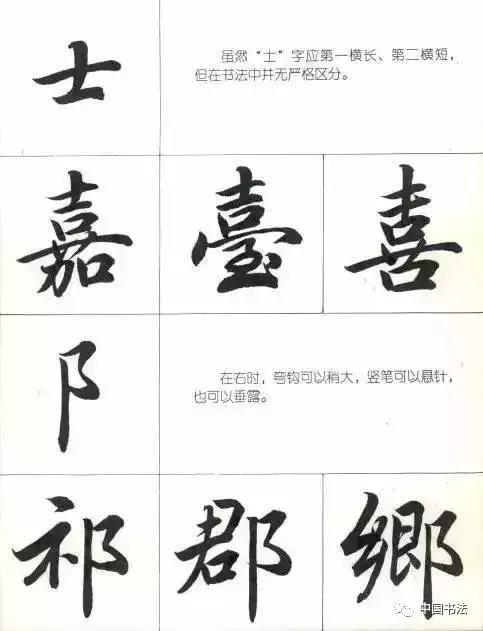 士
虽然“士”字应第一横长、第二横短，
但在书法中并无严格区分。
嘉 臺 喜
阝
在右时，弯钩可以稍大，竖笔可以悬针，
也可以垂露。
祁 郡 鄉
中国书法